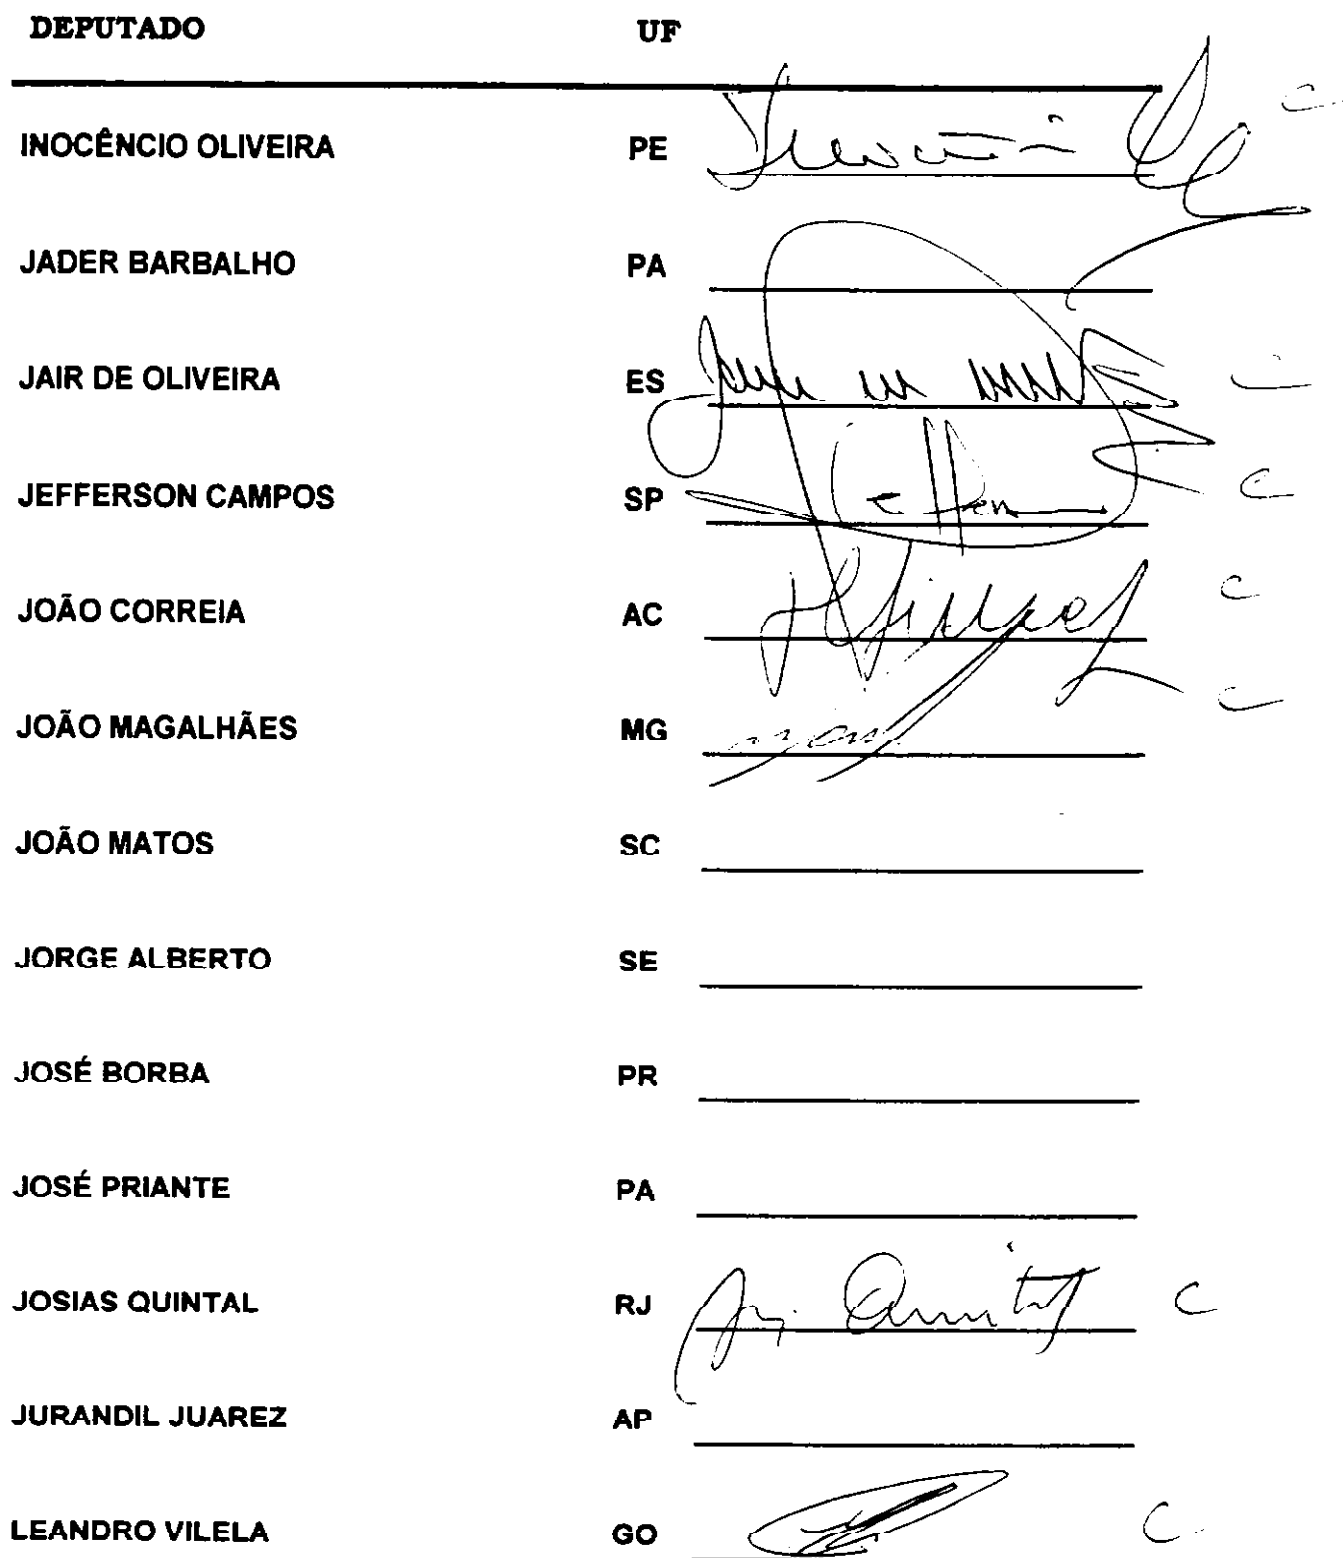 DEPUTADO UF
INOCÊNCIO OLIVEIRA PE
JADER BARBALHO PA
JAIR DE OLIVEIRA ES
JEFFERSON CAMPOS SP C
JOÃO CORREIA AC C
JOÃO MAGALHÃES MG C
JOÃO MATOS SC
JORGE ALBERTO SE
JOSÉ BORBA PR
JOSÉ PRIANTE PA
JOSIAS QUINTAL RJ C
JURANDIL JUAREZ AP
LEANDRO VILELA GO C